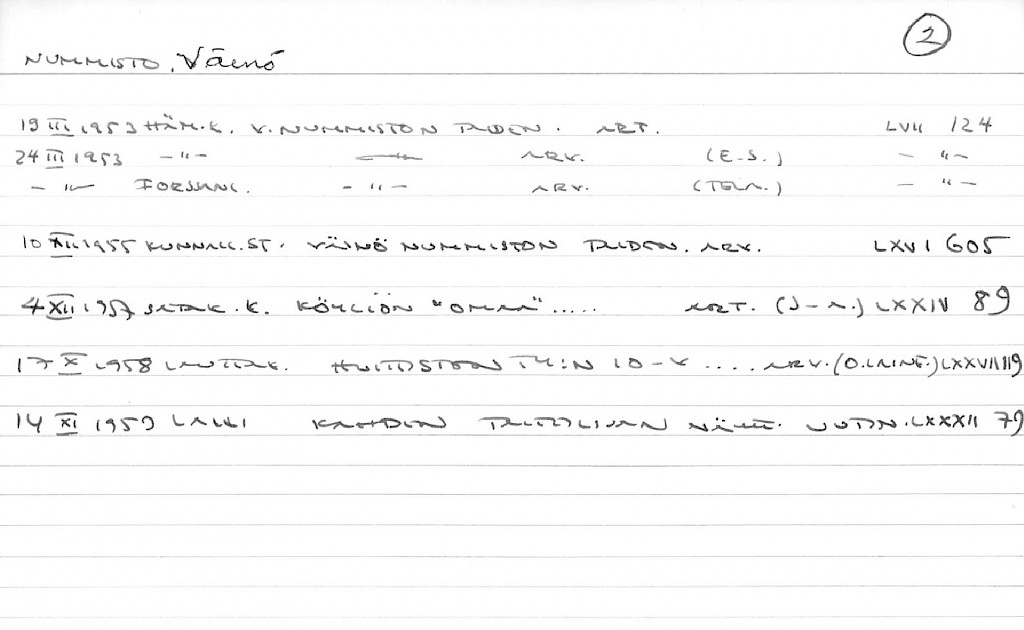 2
NUMMISTO, Väinö
19 III 1953 HÄM.K. V. NUMMISTON TAIDEN. ART. LVII 124
24 III 1953 -"- -"- ARV. (E.S.) - "-
-"- FORSSANL. -"- ARV. (TELA.) - "-
10 XII 1955 KUNNALL.ST. VÄINÖ NUMMISTON TAIDEN. ARV. LXVI 605
4 XII 1957 SATAK.K. KÖYLIÖN "OMAA"..... ART. (J-A.) LXXIV 89
17 X 1958 LAUTTAK. HUITTISTEN TY:N 10-V .... ARV. (O.LAINE.) LXXVII 119
14 XI 1959 LALLI KAHDEN TAITEILIJAN NÄYTT. UUTIN. LXXXII 79